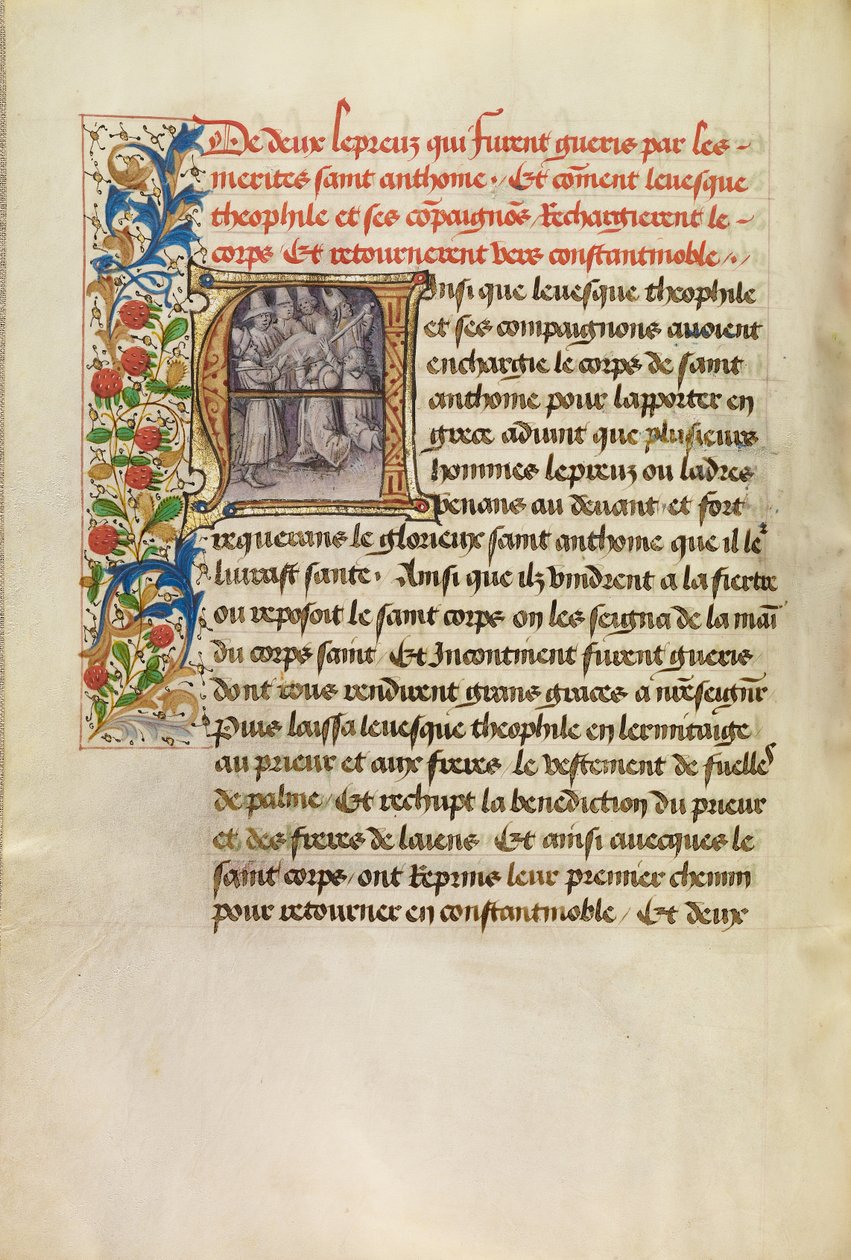 De deux lepreux qui furent gueris par les -
merites saint anthoine . / Et com̄ent levesque
theophile et ses cōpaignōs / Rechargierent le -
corps / Et retournerent vers constantinoble / . /
Ainsi que levesque theophile
et ses compaignons avoient
enchargie le corps de saint
anthoine pour lapporter en
grece advint que plusieurs
hommes lepreux ou ladres
venans au devant / et fort
requerans le glorieux saint anthoine que il leʳ
livrast sante . Ainsi que ilz vindrent a la fiertre
ou reposoit le saint corps on les seigna de la mai̅
du corps saint / Et Incontinent furent gueris /
dont tous rendirent grans graces a nr̄eseignr̄
Puis laissa levesque theophile en lermitaige
au prieur et aux freres / le vestement de fuelleˢ
de palme / Et rechupt la benediction du prieur
et des freres de laiens / Et ainsi avecques le
saint corps / ont Reprins leur premier chemin
pour retourner en constantinoble / Et deux